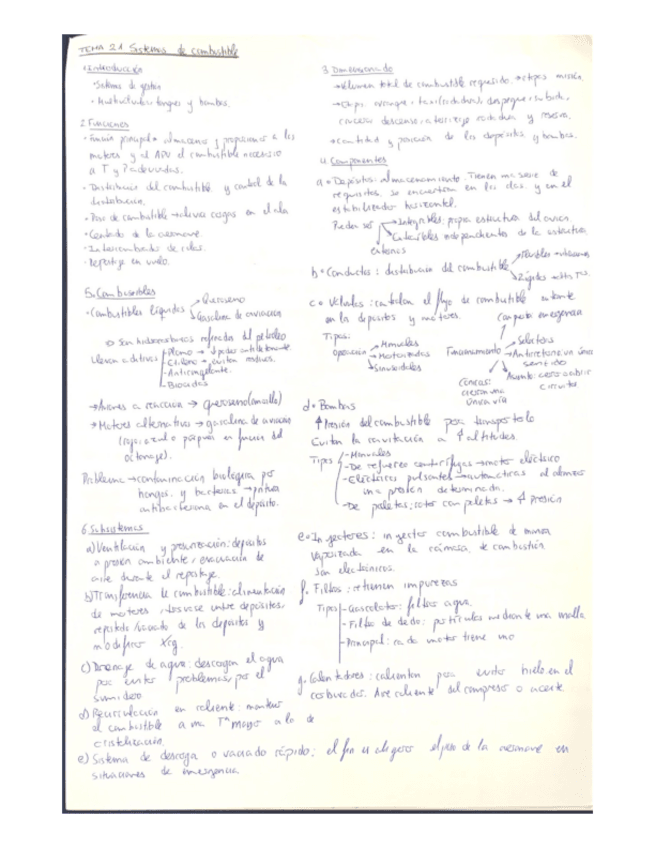 TEMA 21 Sistemas de combustible
1. Introducción
• Sistemas de gestión
• Multiestructural: tanques y bombas.
2. Funciones
• Función principal: almacenar y proporcionar a los
motores y al APU el combustible necesario
a T y P adecuadas.
• Distribución del combustible y control de la
distribución.
• Peso de combustible → alivia cargas en el ala
• Centrado de la aeronave.
• Intercambiador de calor.
• Repostaje en vuelo.
5. Combustibles
• Combustibles líquidos
Queroseno
Gasolina de aviación
Son hidrocarburos refinados del petróleo
Llevan aditivos
- Plomo → poder antidetonante
- Anticongelante.
- Biocidas
→ Aviones a reacción → queroseno (amarillo)
→ Motores alternativo → gasolina de aviación
(roja, azul o púrpura en función del
octanaje).
Problema → contaminación biológica por
hongos y bacterias → pintura
antibacteriana en el depósito.
6. Subsistemas
a) Ventilación y presurización: depósitos
a presión ambiente, evacuación de
aire durante el repostaje.
b) Transferencia de combustible: alimentación
de motores, trasvase entre depósitos,
repostado/vaciado de los depósitos y
modificar Xcg.
c) Drenaje de agua: descargan el agua
para evitar problemas por el
sumidero
d) Recirculación en caliente: mantener
el combustible a una Tª mayor a la de
cristalización.
e) Sistema de descarga o vaciado rápido: el fin es aligerar el peso de la aeronave en
situaciones de emergencia
3. Dimensionado
→ Volumen total de combustible requerido → etapas misión.
→ Etapas: arranque, taxi/rodadura, despegue, subida,
crucero, descenso, aterrizaje, rodadura y reserva.
→ Cantidad y posición de los depósitos y bombas.
4. Componentes
a • Depósitos: almacenamiento. Tienen una serie de
requisitos. Se encuentran en las alas y en el
estabilizador horizontal.
Pueden ser
Integrables: propia estructura del avión.
Extraíbles: independientes de la estructura
externos
b • Conductos: distribución del combustible
Flexibles
Rígidos
c • Válvulas: controlan el flujo de combustible entrante
en los depósitos y motores.
Compuerta emergencia
Tipos:
operación
Manuales
Motorizadas
Funcionamiento
Selectoras
Antirretorno: un único
sentido
Asiento: cerrar o abrir
circuito
Cónicas:
una única vía
d • Bombas
↑ Presión del combustible para transportarlo
Evitan la cavitación a ↑ altitudes.
Tipos
- Manuales
- De refuerzo centrífugas → motor eléctrico
- Eléctricas pulsantes → automáticas al alcanzar
una presión determinada.
- De paletas: rotor con paletas → ↑ Presión
e • Inyectores: inyectar combustible de manera
vaporizada en la cámara de combustión
Son electrónicos.
f. Filtros: retienen impurezas
Tipos
- Gasolator: filtra agua.
- Filtro de dedo: partículas mediante una malla
- Principal: cada motor tiene uno
g. Calentadores: calientan para evitar hielo en el
carburador. Aire caliente del compresor o aceite.